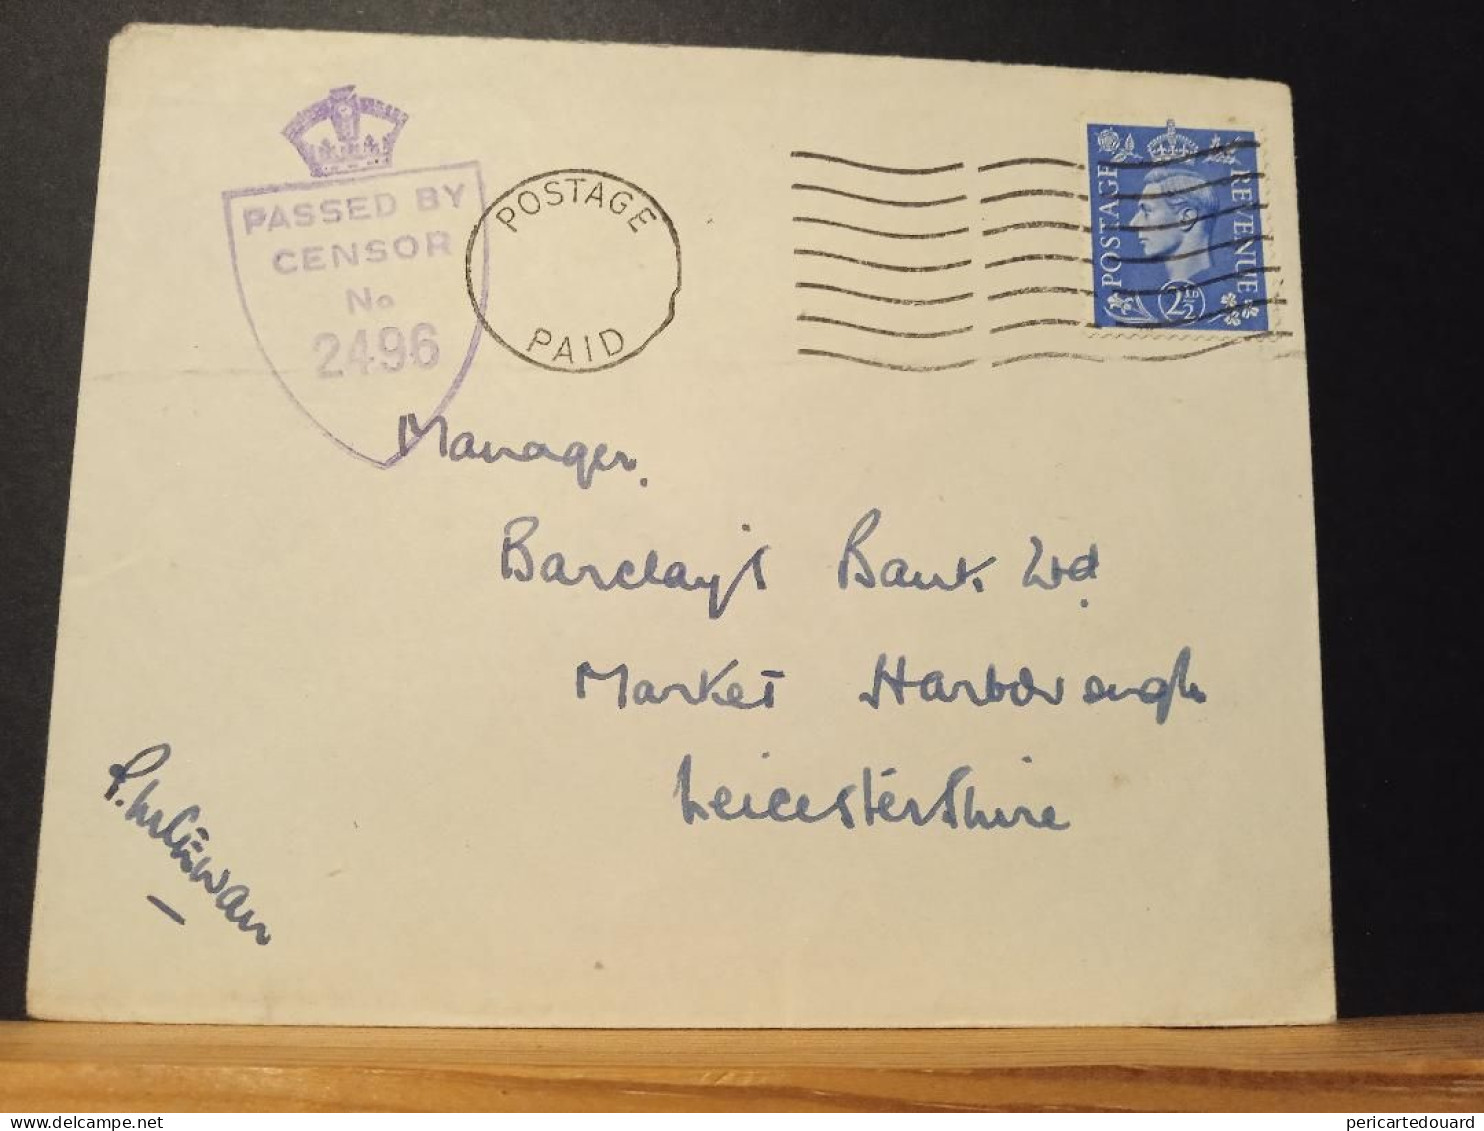 PASSED BY
CENSOR
No
2496
POSTAGE
PAID
POSTAGE
REVENUE
2½D
Manager.
Barclay's Bank Ltd.
Market Harborough
Leicestershire
pericartedouard